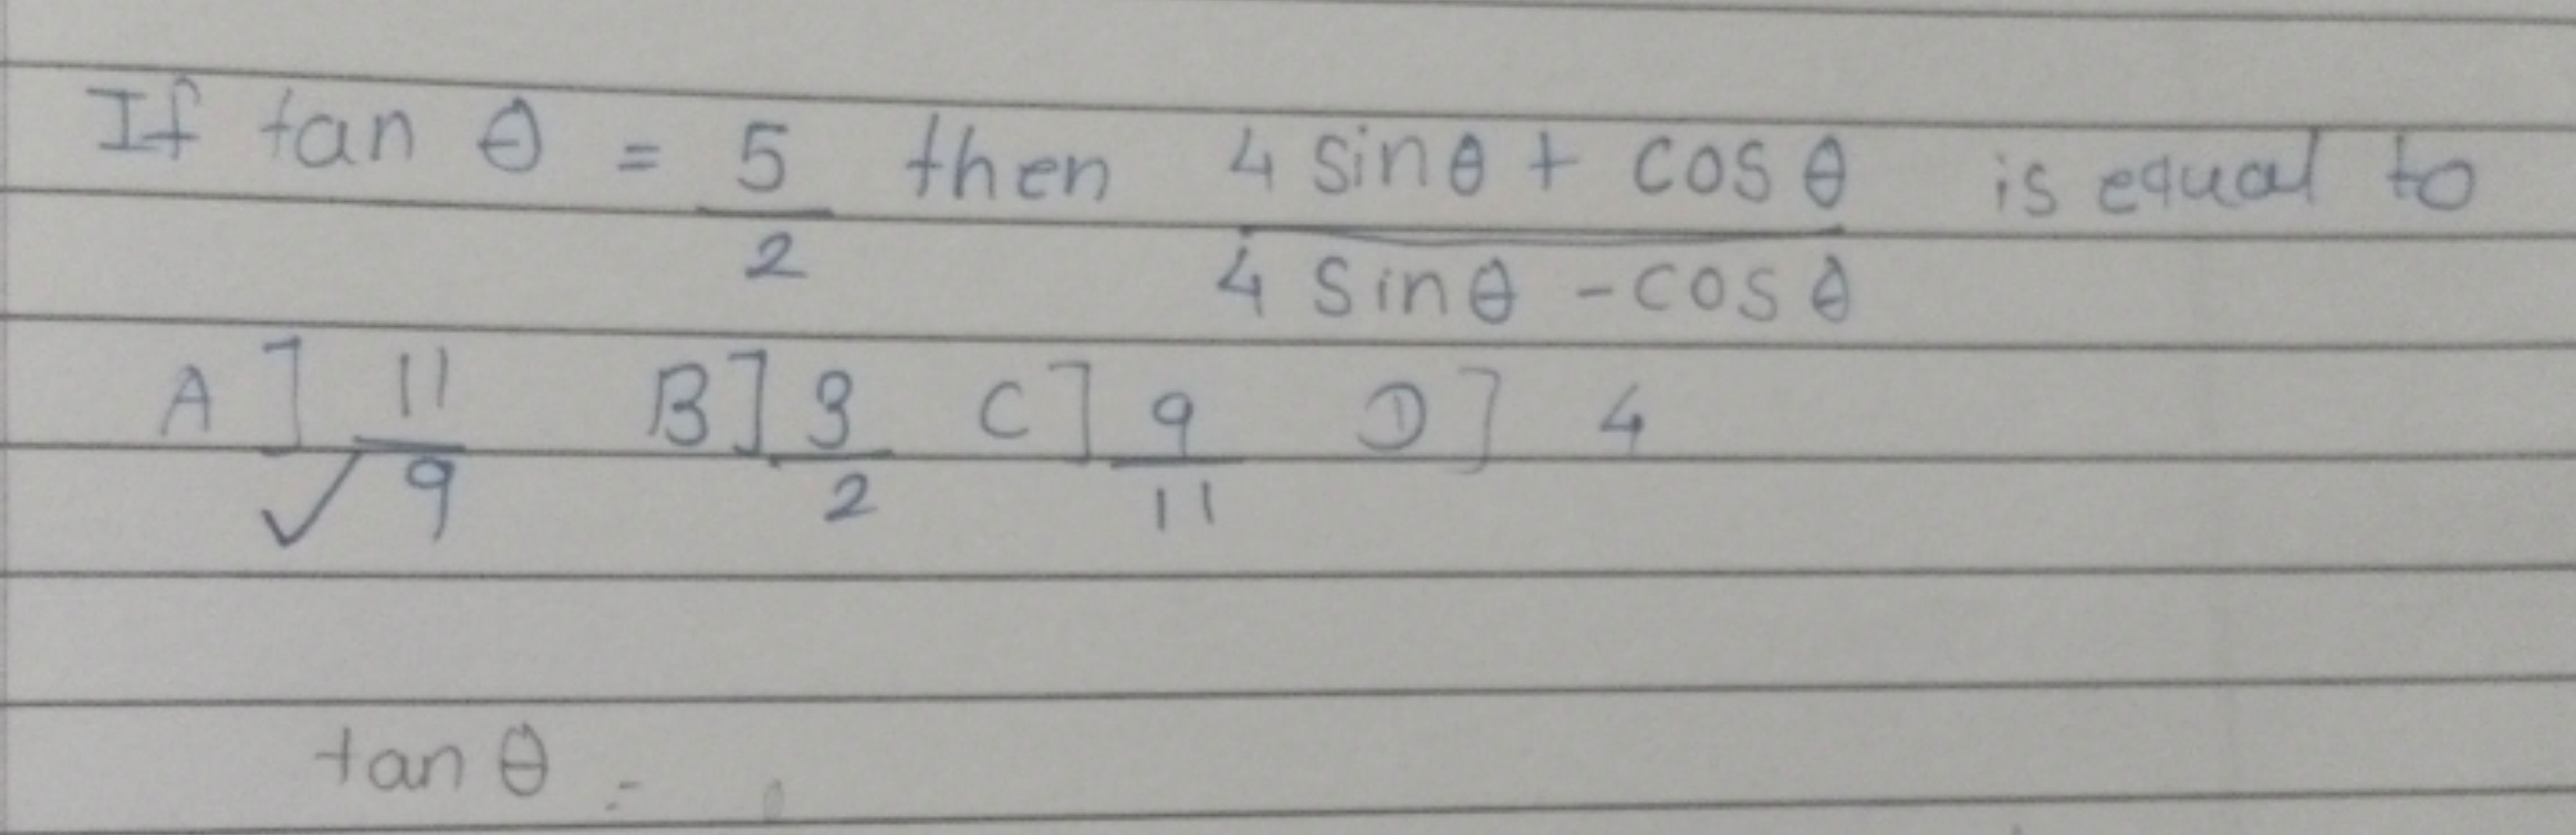 If tan θ = 5/2 then (4 sinθ + cos θ)/(4 sinθ - cos θ) is equal to
A] 11/9 B] 3/2 C] 9/11 D] 4
✓
tan θ =